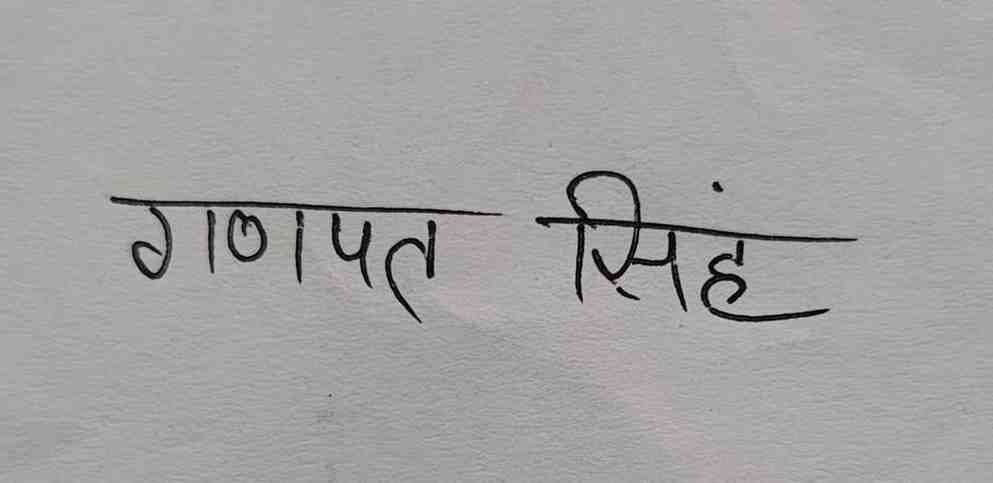 गणपत सिंह